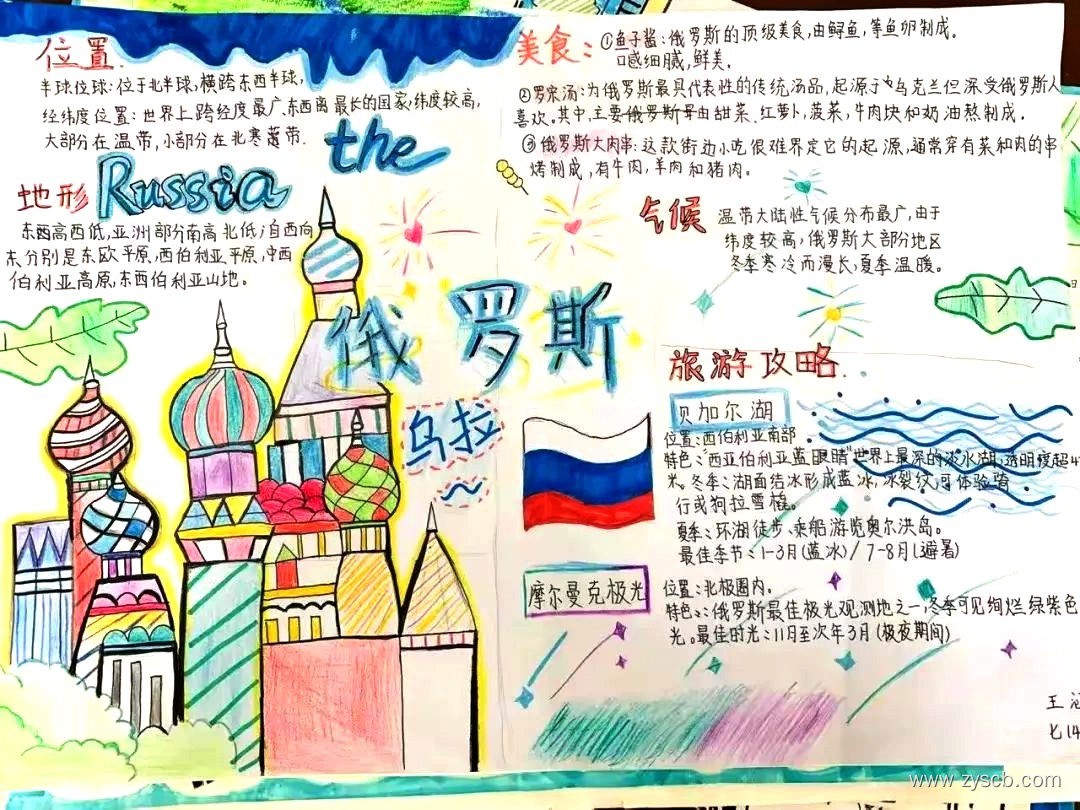 位置
半球位球:位于北半球,横跨东西半球,
经纬度位置:世界上跨经度最广、东西离最长的国家;纬度较高,
大部分在温带,小部分在北寒带.
the
Russia
地形
东西高西低,亚洲部分南高北低;自西向
东分别是东欧平原,西伯利亚平原,中西
伯利亚高原,东西伯利亚山地。
美食:
①鱼子酱:俄罗斯的顶级美食,由鲟鱼,等鱼卵制成。
口感细腻,鲜美.
②罗宋汤:为俄罗斯最具代表性的传统汤品,起源于乌克兰但深受俄罗斯人
喜欢.其中,主要由甜菜、红萝卜,菠菜,牛肉块和奶油熬制成.
③俄罗斯大肉串:这款街边小吃很难界定它的起源,通常穿有菜和肉的串
烤制成,有牛肉,羊肉和猪肉。
气候
温带大陆性气候分布最广,由于
纬度较高,俄罗斯大部分地区
冬季寒冷而漫长,夏季温暖.
俄罗斯
乌拉~
旅游攻略.
贝加尔湖
位置:西伯利亚南部
特色:"西亚伯利亚蓝眼睛"世界上最深的淡水湖,透明度超4
米。冬季:湖面结冰形成蓝冰,冰裂纹,可体验
行或狗拉雪橇。
夏季:环湖徒步、乘船游览奥尔洪岛。
最佳季节:1-3月(蓝冰)/7-8月(避暑)
摩尔曼克极光
位置:北极圈内。
特色:俄罗斯最佳极光观测地之一,冬季可见绚烂绿紫色
光。最佳时光:11月至次年3月(极夜期间)
王
七14
www.zyscb.com